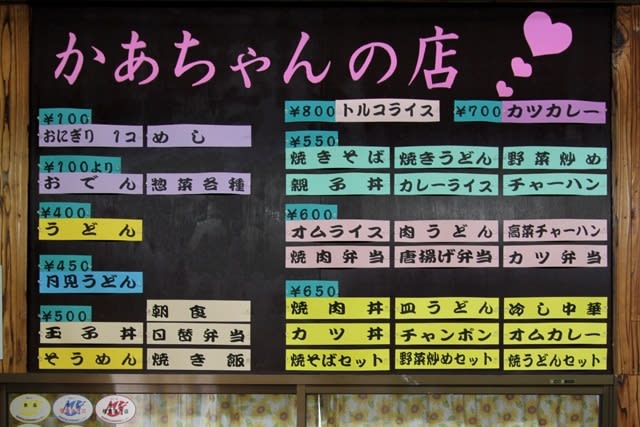 かあちゃんの店
¥100
おにぎり 1コ めし
¥100より
おでん 惣菜各種
¥400
うどん
¥450
月見うどん
¥500
朝食
玉子丼 日替弁当
そうめん 焼き飯
¥800 トルコライス ¥700 カツカレー
¥550
焼きそば 焼きうどん 野菜炒め
親子丼 カレーライス チャーハン
¥600
オムライス 肉うどん 高菜チャーハン
焼肉弁当 唐揚げ弁当 カツ弁当
¥650
焼肉丼 皿うどん 冷し中華
カツ丼 チャンポン オムカレー
焼そばセット 野菜炒めセット 焼うどんセット